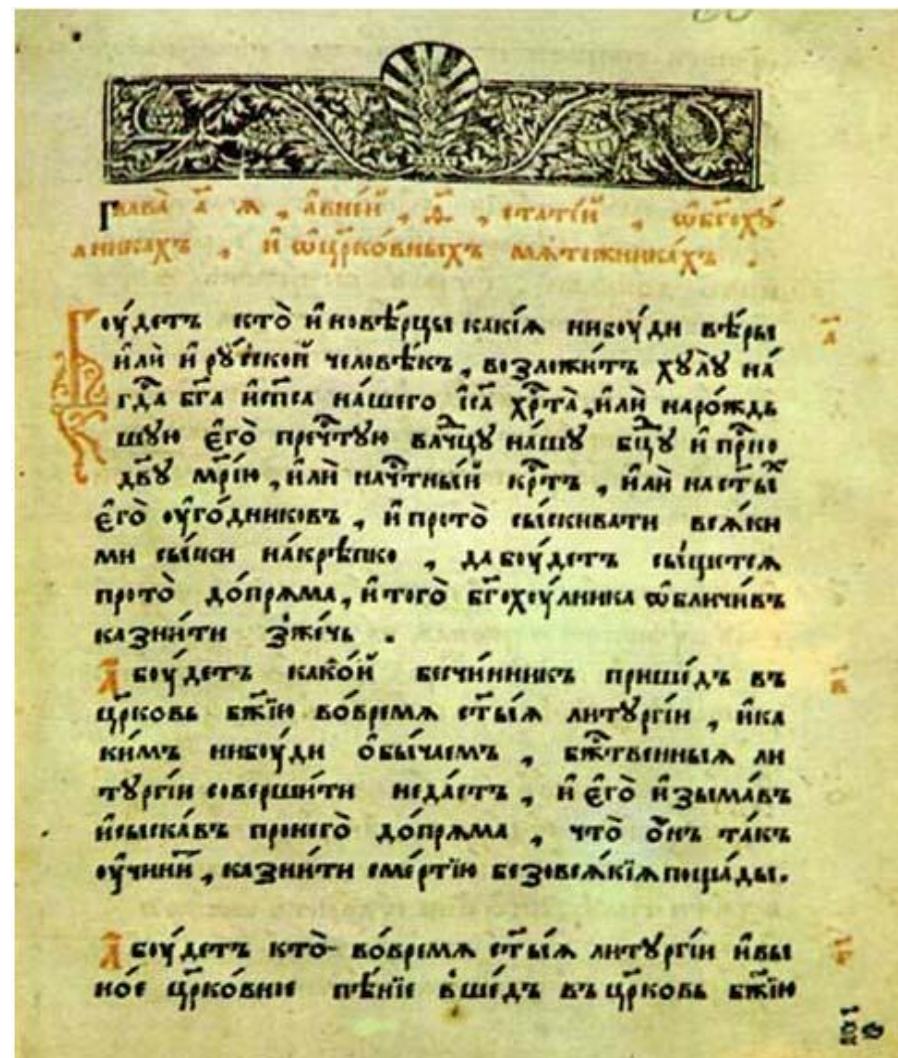 Глава̀ а҃ я , а҆вне́й , ѳ҃ , стате́й , ѡ҆бг҃оху́
лникахъ , и҆ ѡ҆цр҃ко́вныхъ мѧте́жникахъ .
Боу́детъ кто̀ и҆новѣ́рцы какі́ѧ нибоу́ди вѣ́ры
и҆лѝ и҆ ру́ской человѣ́къ , возложи́тъ хулꙋ̀ на́
гдⷭ҇а бг҃а и҆сп҃са на́шего і҆са҃ хрⷭ҇та̀ , и҆лѝ наро́ждь
шую є҆го̀ пречⷭ҇тую влⷣчцꙋ на́шꙋ бцⷣꙋ и҆ прⷭ҇но
дв҃ꙋ мр҃і́ю , и҆лѝ начⷭ҇тны́й крⷭ҇тъ , и҆лѝ на ст҃ы́ⷯ
є҆го̀ оу҆го́дниковъ , и҆ прото̀ сы́скивати всѧ́ки
ми сы́ски на́крѣпко , да боу́детъ сы́щетсѧ
прото̀ до́прѧма , и҆ того̀ бг҃охоу́лника ѡ҆бличи́въ
казни́ти зже́чь .
А҆ боу́детъ како́й бесчи́нникъ прише́дъ въ
цр҃ковь бж҃ію во́времѧ ст҃ы́ѧ литꙋргі́и , и҆ка
ки́мъ нибоу́ди ѻ҆бы́чаемъ , бжⷭ҇твенныѧ ли
тꙋргі́и соверши́ти неда́стъ , и҆ є҆го̀ и҆зыма́въ
и҆сыска́въ пронего̀ до́прѧма , что̀ ѻ҆́нъ та́къ
оу҆чини́т , казни́ти сме́ртїю безовсѧ́кїѧ поща́ды.
А҆ боу́детъ кто̀ во́времѧ ст҃ы́ѧ литꙋргі́и и҆вы
но́е цр҃ко́вное пѣ́нїе вше́дъ въ цр҃ковь бж҃ію
а҃
в҃
г҃